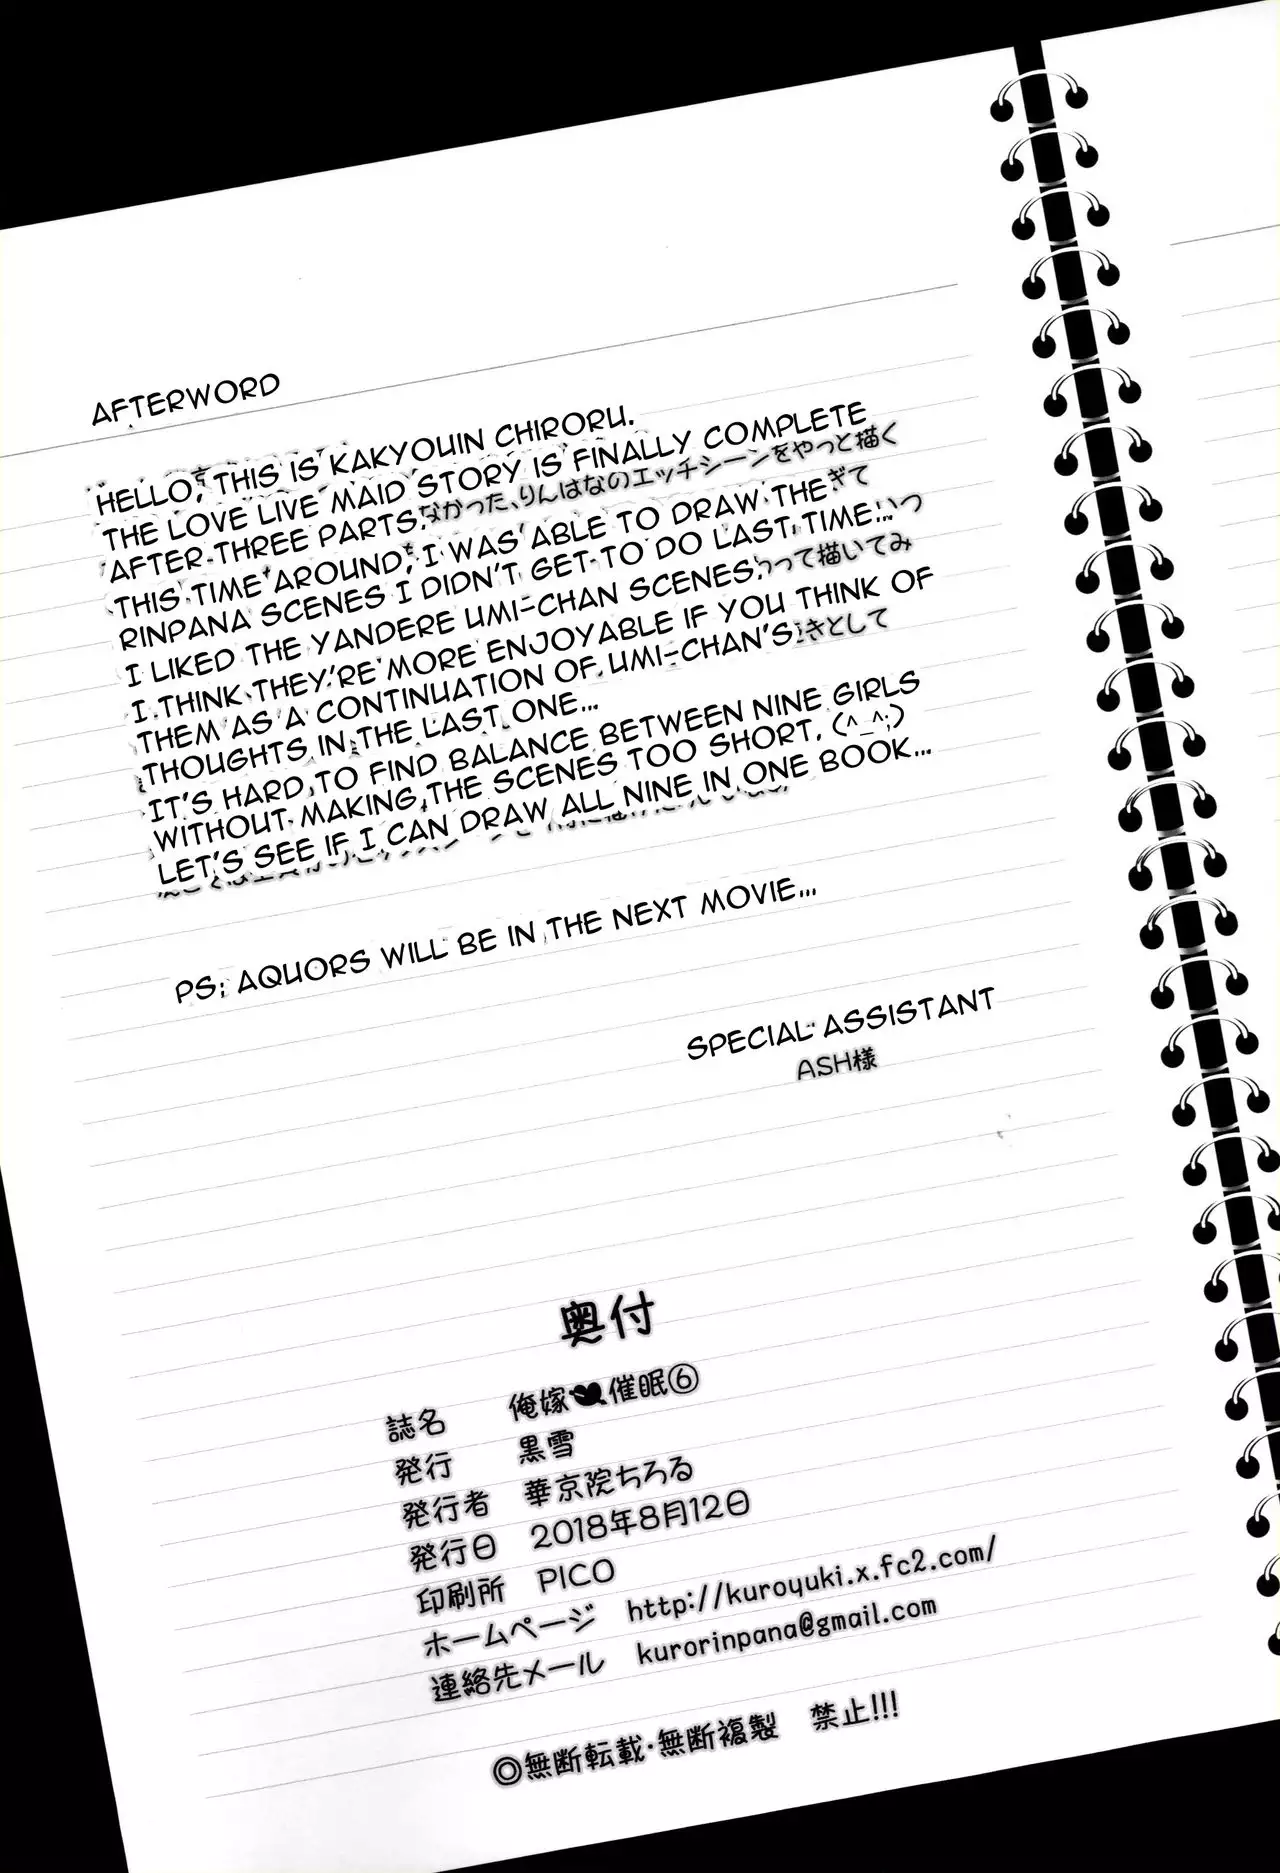 AFTERWORD
HELLO, THIS IS KAKYOUIN CHIRORU.
THE LOVE LIVE MAID STORY IS FINALLY COMPLETE
AFTER THREE PARTS.
なかった、りんはなのエッチシーンをやっと描く
THIS TIME AROUND, I WAS ABLE TO DRAW THE
ぎて
RINPANA SCENES I DIDN'T GET TO DO LAST TIME...
いつ
I LIKED THE YANDERE UMI-CHAN SCENES.
って描いてみ
I THINK THEY'RE MORE ENJOYABLE IF YOU THINK OF
THEM AS A CONTINUATION OF UMI-CHAN'S
きとして
THOUGHTS IN THE LAST ONE...
IT'S HARD TO FIND BALANCE BETWEEN NINE GIRLS
WITHOUT MAKING THE SCENES TOO SHORT. (^_^;)
LET'S SEE IF I CAN DRAW ALL NINE IN ONE BOOK...
PS: AQUORS WILL BE IN THE NEXT MOVIE...
SPECIAL ASSISTANT
ASH様
奥付
誌名 俺嫁催眠⑥
発行 黒雪
発行者 華京院ちろる
発行日 2018年8月12日
印刷所 PICO
ホームページ http://kuroyuki.x.fc2.com/
連絡先メール kurorinpana@gmail.com
◎無断転載・無断複製 禁止!!!